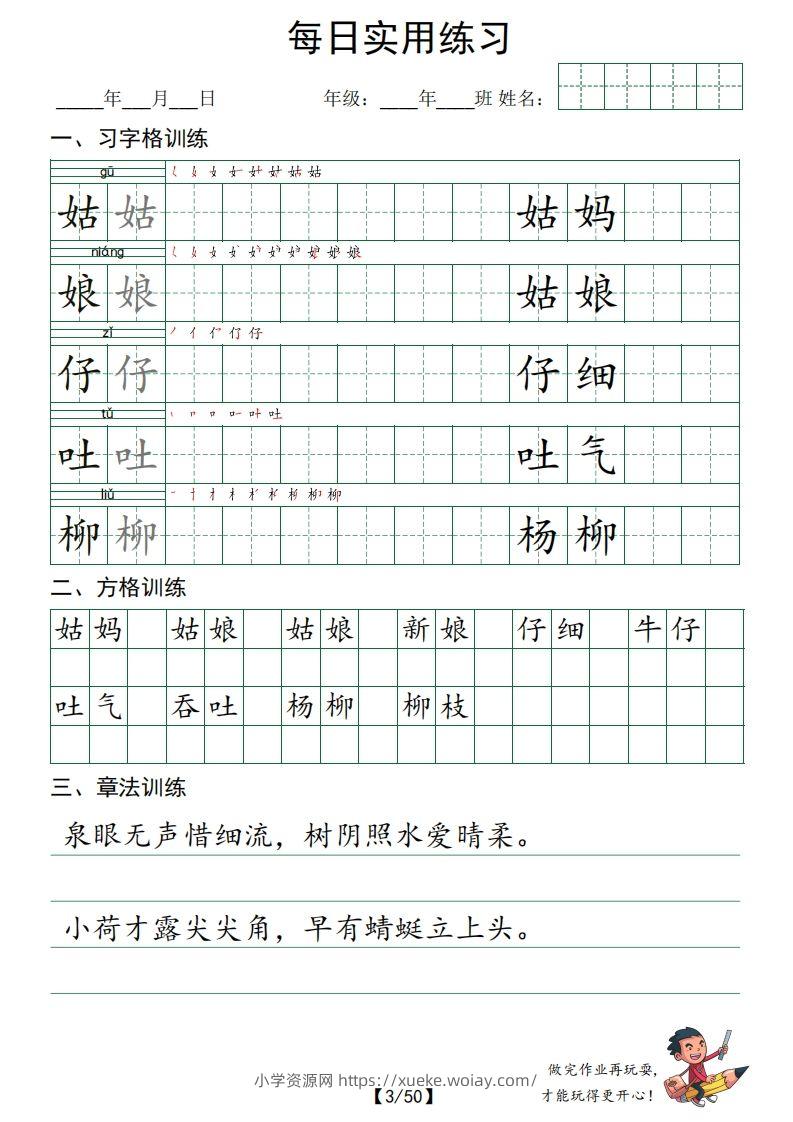 每日实用练习
_____年___月___日 年级：____年____班 姓名：
一、习字格训练
gū
姑 姑 姑 妈
niáng
娘 娘 姑 娘
zǐ
仔 仔 仔 细
tǔ
吐 吐 吐 气
liǔ
柳 柳 杨 柳
二、方格训练
姑 妈 姑 娘 姑 娘 新 娘 仔 细 牛 仔
吐 气 吞 吐 杨 柳 柳 枝
三、章法训练
泉眼无声惜细流，树阴照水爱晴柔。
小荷才露尖尖角，早有蜻蜓立上头。
做完作业再玩耍，
才能玩得更开心！
小学资源网 https://xueke.woiay.com/
【3/50】